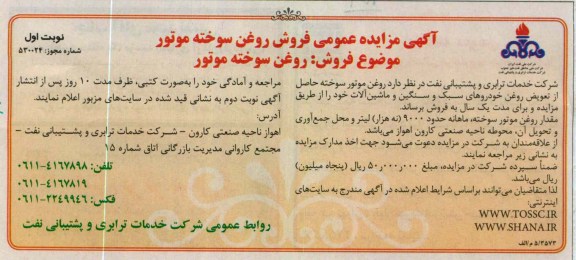 نوبت اول
شماره مجوز: ۵۳۰۰۲۴
آگهی مزایده عمومی فروش روغن سوخته موتور
موضوع فروش: روغن سوخته موتور
شرکت خدمات ترابری و پشتیبانی نفت در نظر دارد روغن موتور سوخته حاصل
از تعویض روغن خودروهای سبک و سنگین و ماشین‌آلات خود را از طریق
مزایده و برای مدت یک سال به فروش برساند.
مقدار روغن موتور سوخته، ماهانه حدود ۹۰۰۰ (نه هزار) لیتر و محل جمع‌آوری
و تحویل آن، محوطه ناحیه صنعتی کارون اهواز می‌باشد.
از علاقه‌مندان به شرکت در مزایده دعوت می‌شود جهت اخذ مدارک مزایده
به نشانی زیر مراجعه نمایند.
ضمناً سپرده شرکت در مزایده، مبلغ ۵۰٫۰۰۰٫۰۰۰ ریال (پنجاه میلیون)
ریال می‌باشد.
لذا متقاضیان می‌توانند براساس شرایط اعلام شده در آگهی مندرج به سایت‌های
اینترنتی:
WWW.TOSSC.IR
WWW.SHANA.IR
۵/۳۵۷۳م/الف
مراجعه و آمادگی خود را به‌صورت کتبی، ظرف مدت ۱۰ روز پس از انتشار
آگهی نوبت دوم به نشانی قید شده در سایت‌های مزبور اعلام نمایند.
آدرس:
اهواز ناحیه صنعتی کارون – شرکت خدمات ترابری و پشتیبانی نفت –
مجتمع کاروانی مدیریت بازرگانی اتاق شماره ۱۵
تلفن: ۴۱۶۷۸۹۸-۰۶۱۱
۴۱۶۷۸۱۹-۰۶۱۱
فکس: ۲۲۴۹۹۴۶-۰۶۱۱
روابط عمومی شرکت خدمات ترابری و پشتیبانی نفت